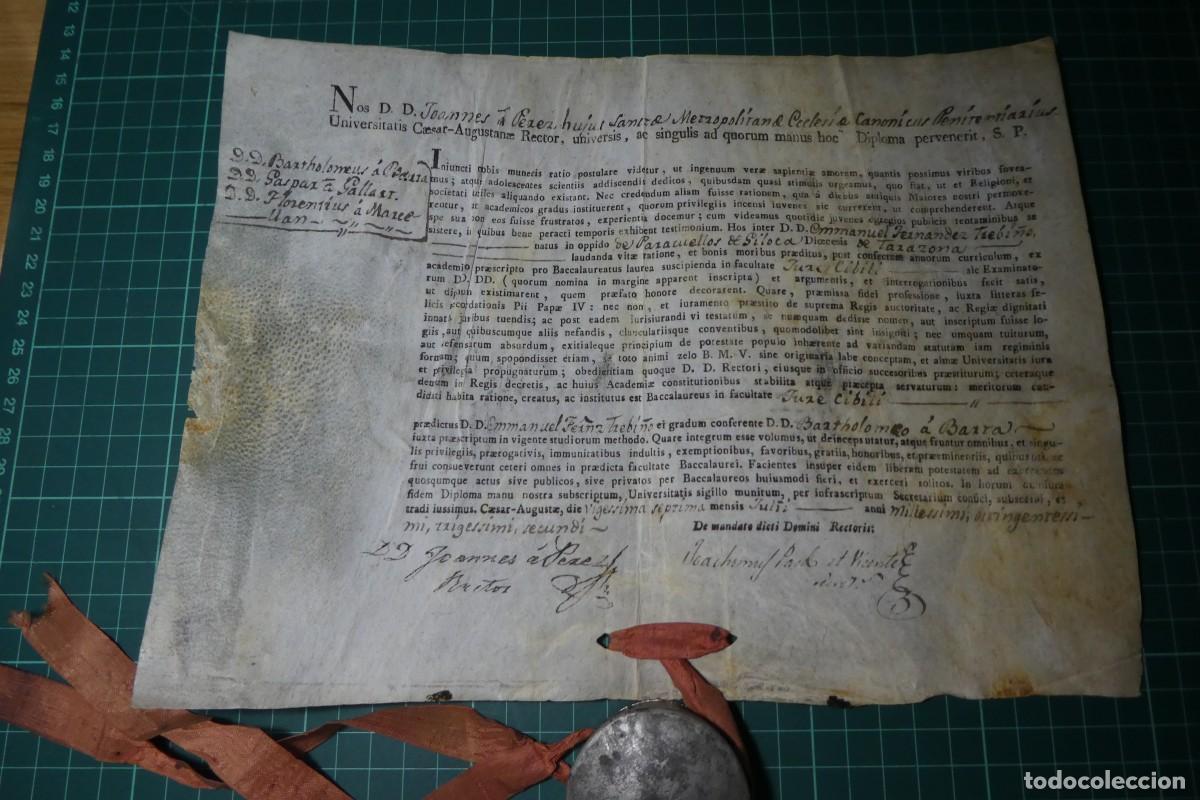 Nos D. D. Joannes á Perez hujus Sanctæ Metropolitanæ Ecclesiæ Canonicus Penitentiarius
Universitatis Cæsar-Augustanæ Rector, universis, ac singulis ad quorum manus hoc Diploma pervenerit, S. P.
D. D. Bartholomeus á Barra
D D. Gaspar á Gallart.
D. D. Florentius á Marce
llan
Iniuncti nobis muneris ratio postulare videtur, ut ingenuum veræ sapientiæ amorem, quantis possimus viribus fovea-
mus; atque adolescentes scientiis addiscendis deditos, quibusdam quasi stimulis urgeamus, quo fiat, ut et Religioni, et
societati utiles aliquando existant. Nec credendum aliam fuisse rationem, qua á diebus antiquis Maiores nostri permove-
rentur, ut academicos gradus instituerent, quorum privilegiis incensi iuvenes sic currerent, ut comprehenderent. Atque
spe sua non eos fuisse frustratos, experientia docemur; cum videamus quotidie juvenes egregios publicis tentaminibus se
sistere, in quibus bene peracti temporis exhibent testimonium. Hos inter D. D. Emmanuel Fernandez Trebiño,
natus in oppido de Paracuellos de Giloca Diœcesis de Tarazona
laudanda vitæ ratione, et bonis moribus præditus, post confectam annorum curriculum, ex
academio præscripto pro Baccalaureatus laurea suscipienda in facultate Jure Cibili sic Examinato-
rum DD. DD. (quorum nomina in margine apparent inscripta) et argumentis, et interrogationibus fecit satis,
ut dignum existimarent, quem præfato honore decorarent. Quare, præmissa fidei professione, iuxta litteras fe-
licis recordationis Pii Papæ IV: nec non, et iuramento præstito de suprema Regis auctoritate, ac Regiæ dignitati
innatis juribus tuendis; ac post eadem Iurisiurandi vi testatum, se numquam dedisse nomen, aut inscriptum fuisse lo-
giis, aut quibuscumque aliis nefandis, clanculariisque conventibus, quomodolibet sint insigniti; nec umquam tuiturum,
aut defensatum absurdum, exitialeque principium de potestate populo inhærente ad variandam statutam iam regiminis
formam; quum spopondisset etiam, se toto animi zelo B. M. V. sine originaria labe conceptam, et almæ Universitatis iura
et privilegia propugnaturum; obedientiam quoque D. D. Rectori, eiusque in officio succesoribus præstiturum; ceteraque
denum in Regis decretis, ac huius Academiæ constitutionibus stabilita atque præcepta servaturum: meritorum can-
diditi habita ratione, creatus, ac institutus est Baccalaureus in facultate Jure Cibili
prædictus D. D. Emmanuel Fernz Trebiño ei gradum conferente D. D. Bartholomeo á Barra
iuxta præscriptum in vigente studiorum methodo. Quare integrum esse volumus, ut deinceps utatur, atque fruatur omnibus, et singu-
lis privilegiis, prærogativis, immunitatibus indultis, exemptionibus, favoribus, gratiis, honoribus, et præeminentiis, quibus uti, ac
frui consueverunt ceteri omnes in prædicta facultate Baccalaurei. Facientes insuper eidem liberam potestatem ad exercendos
quosqumque actus sive publicos, sive privatos per Baccalaureos huiusmodi fieri, et exerceri solitos. In horum omnium
fidem Diploma manu nostra subscriptum, Universitatis sigillo munitum, per infrascriptum Secretarium confici, subscribi, et
tradi iussimus. Cæsar-Augustæ, die vigessima septima mensis Julii anni Millessimi, octingentessi-
mi, trigessimi, secundi
De mandato dicti Domini Rectoris:
D D Joannes á Perez
Rector
Joachimus et Vicente
todocoleccion
12
13
14
15
16
17
18
19
20
21
22
23
24
25
26
27
28